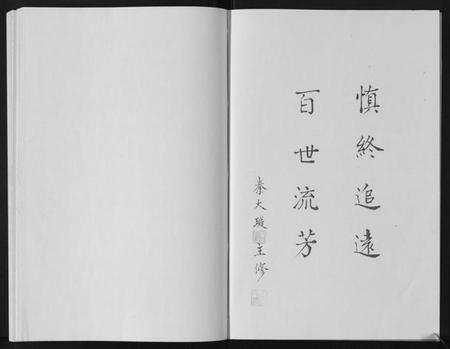 慎終追遠
百世流芳
秦大璇 主修